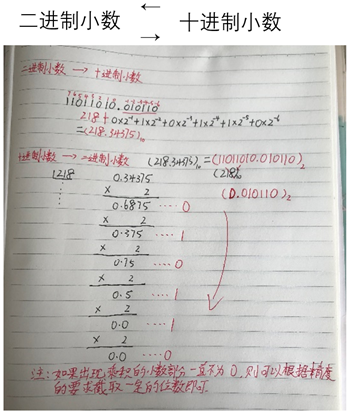 二进制小数 ← → 十进制小数
二进制小数 → 十进制小数
7 6 5 4 3 2 1 0 -1 -2 -3 -4 -5 -6
11011010.010110
218 + 0×2⁻¹+1×2⁻²+0×2⁻³+1×2⁻⁴+1×2⁻⁵+0×2⁻⁶
=(218.34375)₁₀
十进制小数 → 二进制小数 (218.34375)₁₀=(11011010.010110)₂
1218 0.34375 (218)₁₀
× 2 (0.010110)₂
0.6875 ···· 0
× 2
0.375 ···· 1
× 2
0.75 ···· 0
× 2
0.5 ···· 1
× 2
0.0 ···· 1
× 2
0.0 ···· 0
注：如果出现乘积的小数部分一直不为0，则可以根据精度
的要求截取一定的位数即可.